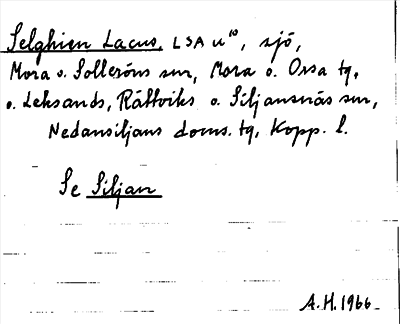 Selghien Lacus, LSA u¹⁰, sjö,
Mora o. Solleröns snr, Mora o. Orsa tg,
o. Leksands, Rättviks o. Siljansnäs snr,
Nedansiljans doms. tg, Kopp. l.
Se Siljan
A.H. 1966.